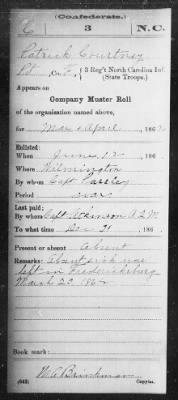 (Confederate.)
C 3 N.C.
Patrick Courtney
Pt, Co. F, 3 Reg't North Carolina Inf.
(State Troops.)
Appears on
Company Muster Roll
of the organization named above,
for Mar & April, 186
Enlisted:
When June 12, 186
Where Wilmington
By whom Capt
Period war
Last paid:
By whom Capt Atkinson A.Q.M.
To what time Dec 31, 186
Present or absent Absent
Remarks: Absent sick was
left in Fredericksburg
March 23 1862
Book mark:
(642) Copyist.